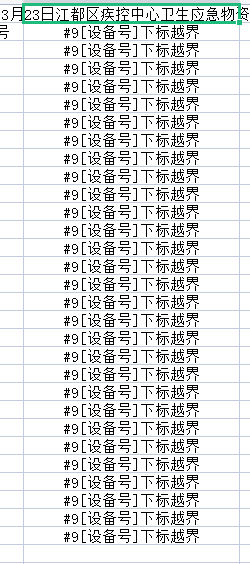 3月23日江都区疾控中心卫生应急物资
号 #9[设备号]下标越界
#9[设备号]下标越界
#9[设备号]下标越界
#9[设备号]下标越界
#9[设备号]下标越界
#9[设备号]下标越界
#9[设备号]下标越界
#9[设备号]下标越界
#9[设备号]下标越界
#9[设备号]下标越界
#9[设备号]下标越界
#9[设备号]下标越界
#9[设备号]下标越界
#9[设备号]下标越界
#9[设备号]下标越界
#9[设备号]下标越界
#9[设备号]下标越界
#9[设备号]下标越界
#9[设备号]下标越界
#9[设备号]下标越界
#9[设备号]下标越界
#9[设备号]下标越界
#9[设备号]下标越界
#9[设备号]下标越界
#9[设备号]下标越界
#9[设备号]下标越界
#9[设备号]下标越界
#9[设备号]下标越界
#9[设备号]下标越界